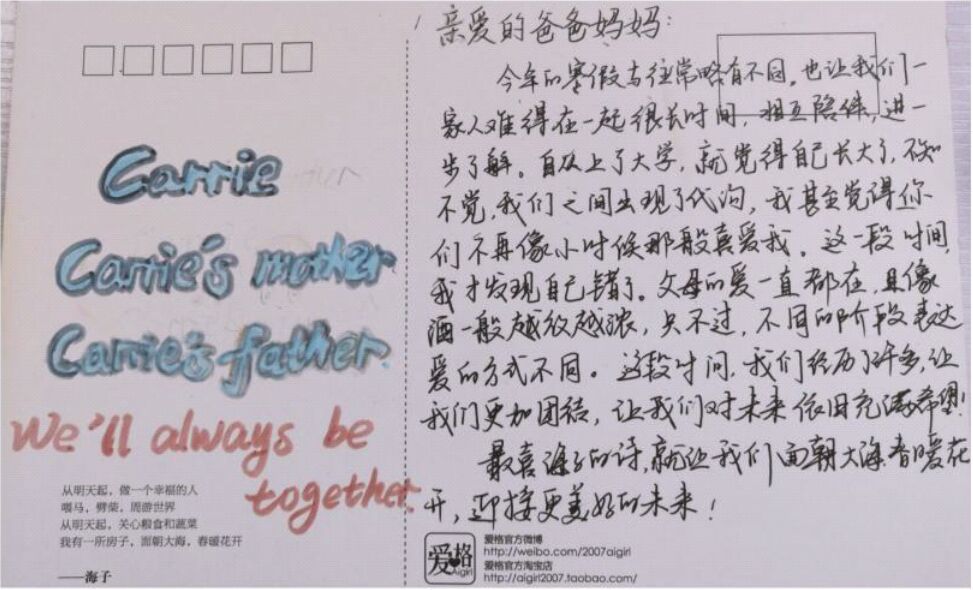 Carrie
Carrie's mother
Carrie's father.
We'll always be
together.
从明天起，做一个幸福的人
喂马，劈柴，周游世界
从明天起，关心粮食和蔬菜
我有一所房子，面朝大海，春暖花开
——海子
亲爱的爸爸妈妈：
今年的寒假与往常略有不同，也让我们一
家人难得在一起很长时间，相互陪伴，进一
步了解。自从上了大学，就觉得自己长大了，不知
不觉，我们之间出现了代沟，我甚至觉得你
们不再像小时候那般喜爱我。这一段时间，
我才发现自己错了。父母的爱一直都在，且像
酒一般越放越浓，只不过，不同的阶段表达
爱的方式不同。这段时间，我们经历了许多，让
我们更加团结，让我们对未来依旧充满希望！
最喜海子的诗，就让我们面朝大海，春暖花
开，迎接更美好的未来！
爱格
Aigirl
爱格官方微博
http://weibo.com/2007aigirl
爱格官方淘宝店
http://aigirl2007.taobao.com/